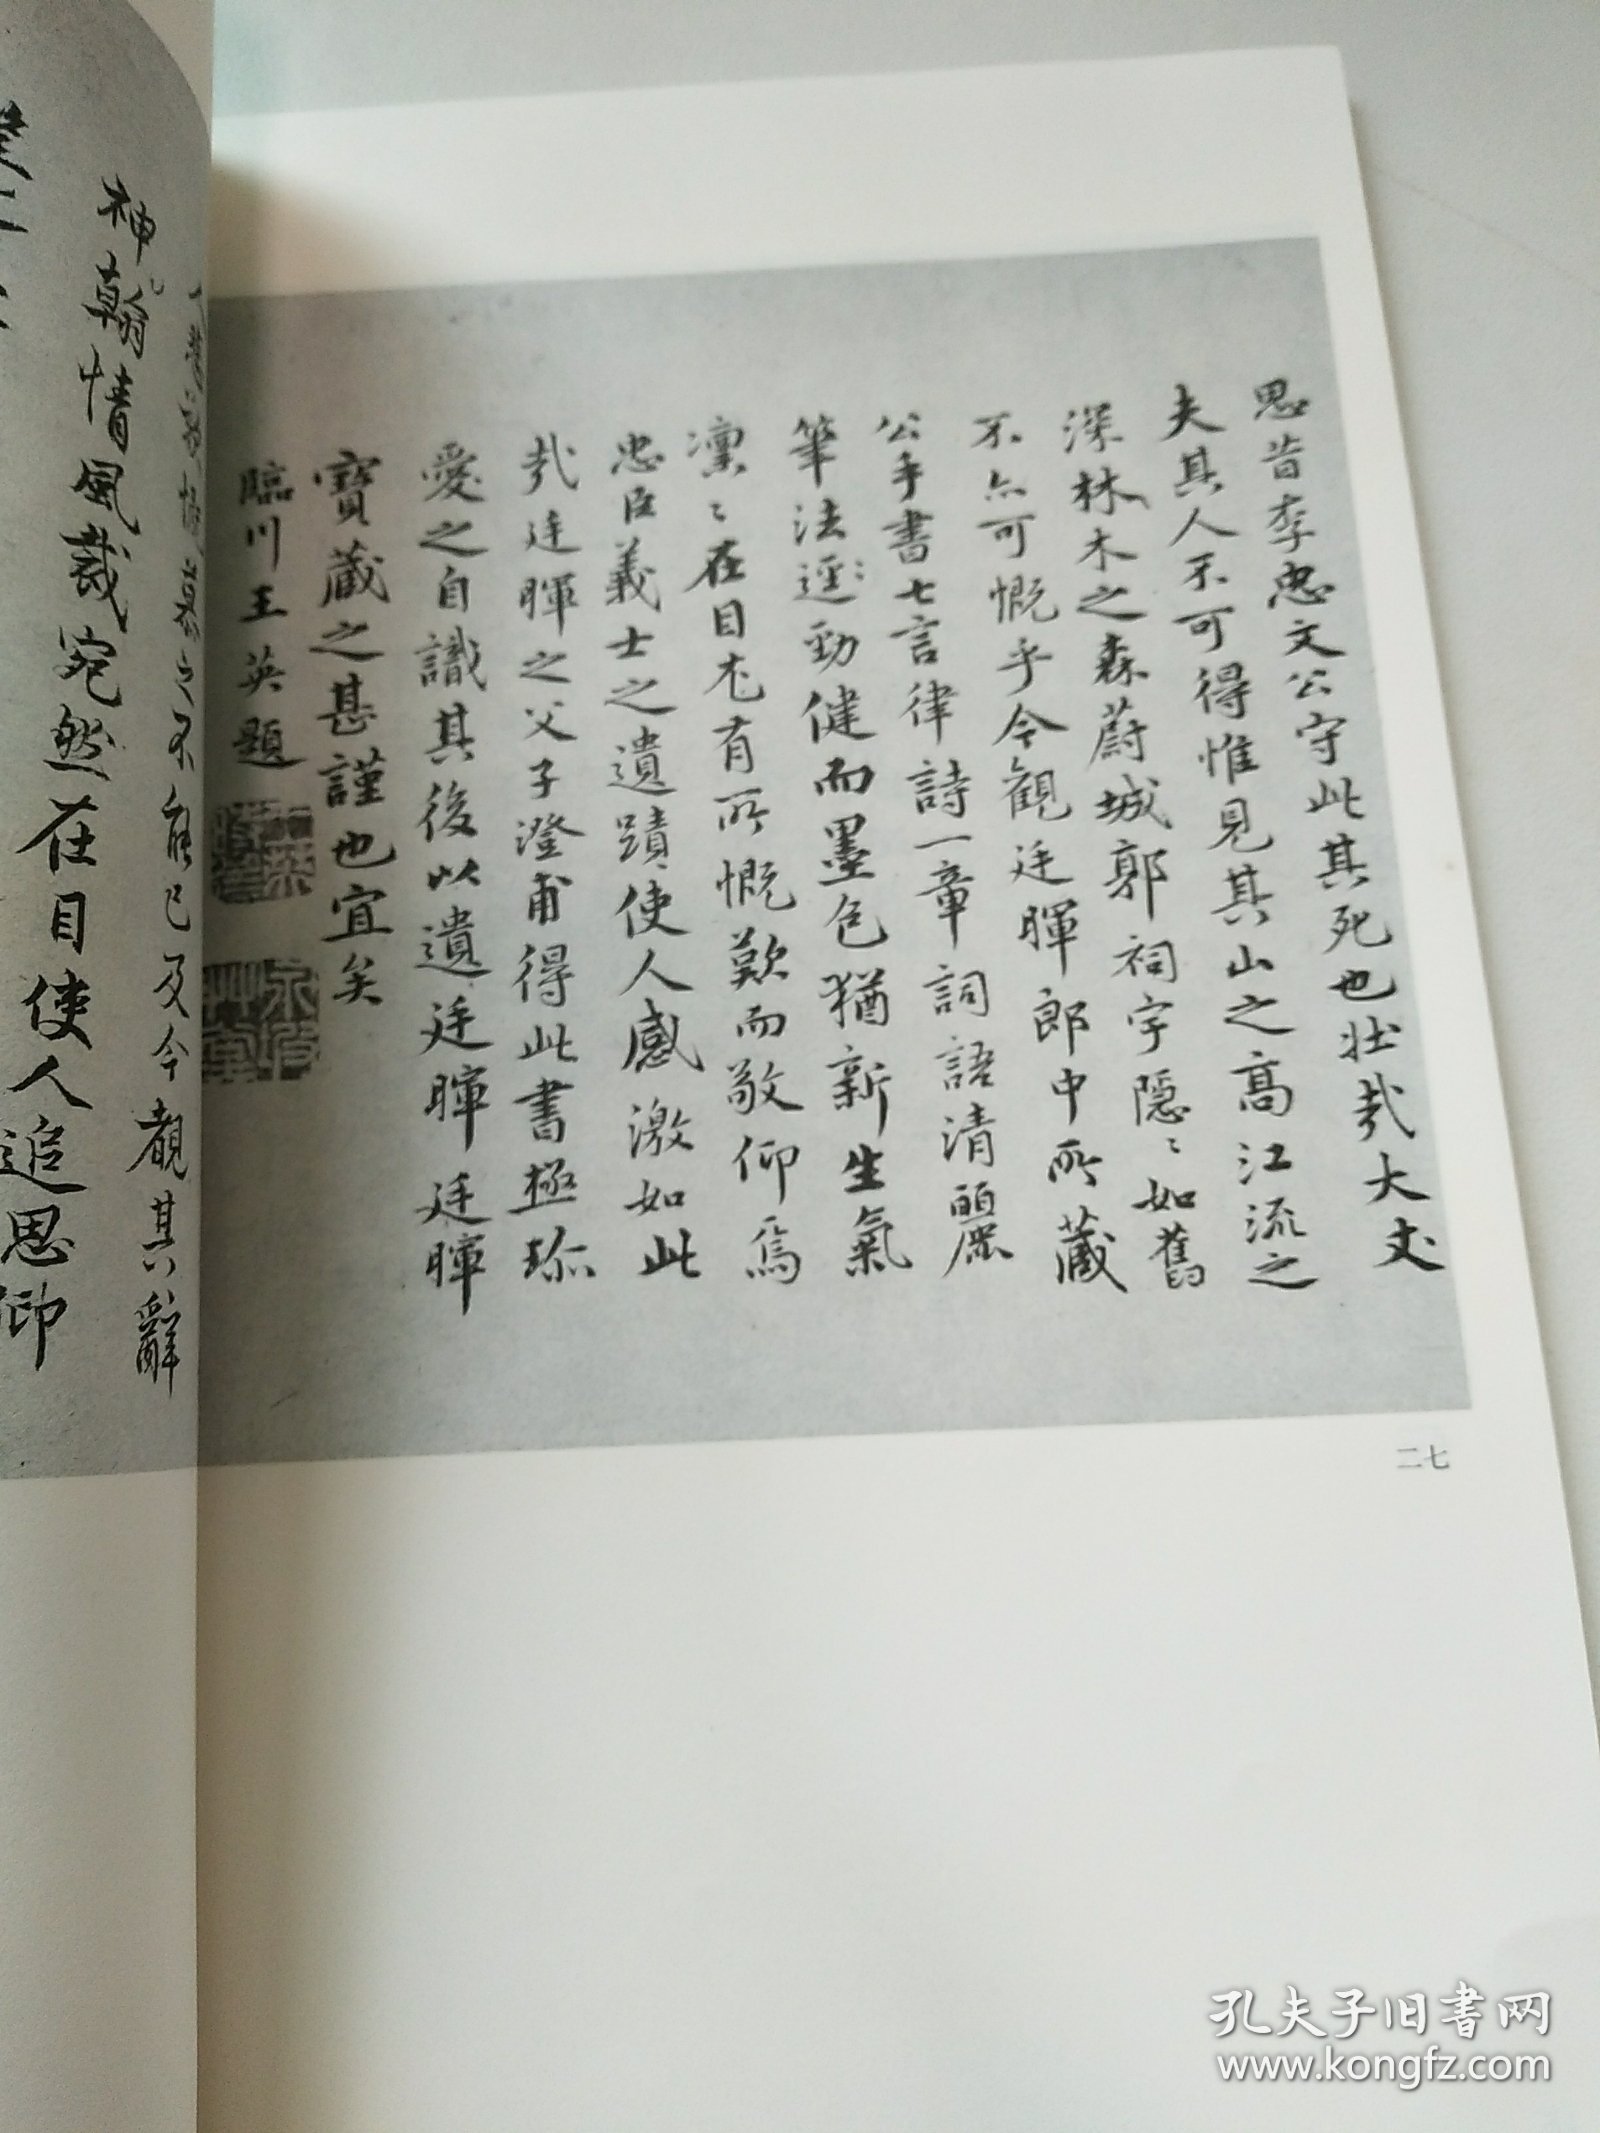 思昔李忠文公守此其死也壯哉大丈
夫其人不可得惟見其山之高江流之
深林木之森蔚城郭祠宇隱〻如舊
不亦可慨乎今觀廷暉郎中所藏
公手書七言律詩一章詞語清麗
筆法遒勁健而墨色猶新生氣
凜〻在目尤有所慨歎而敬仰焉
忠臣義士之遺蹟使人感激如此
哉廷暉之父子澄甫得此書極珎
愛之自識其後以遺廷暉廷暉
寶藏之甚謹也宜矣
臨川王英題
不能已及今覩其辭
神翰情風裁宛然在目使人追思仰
二七
孔夫子旧书网
www.kongfz.com